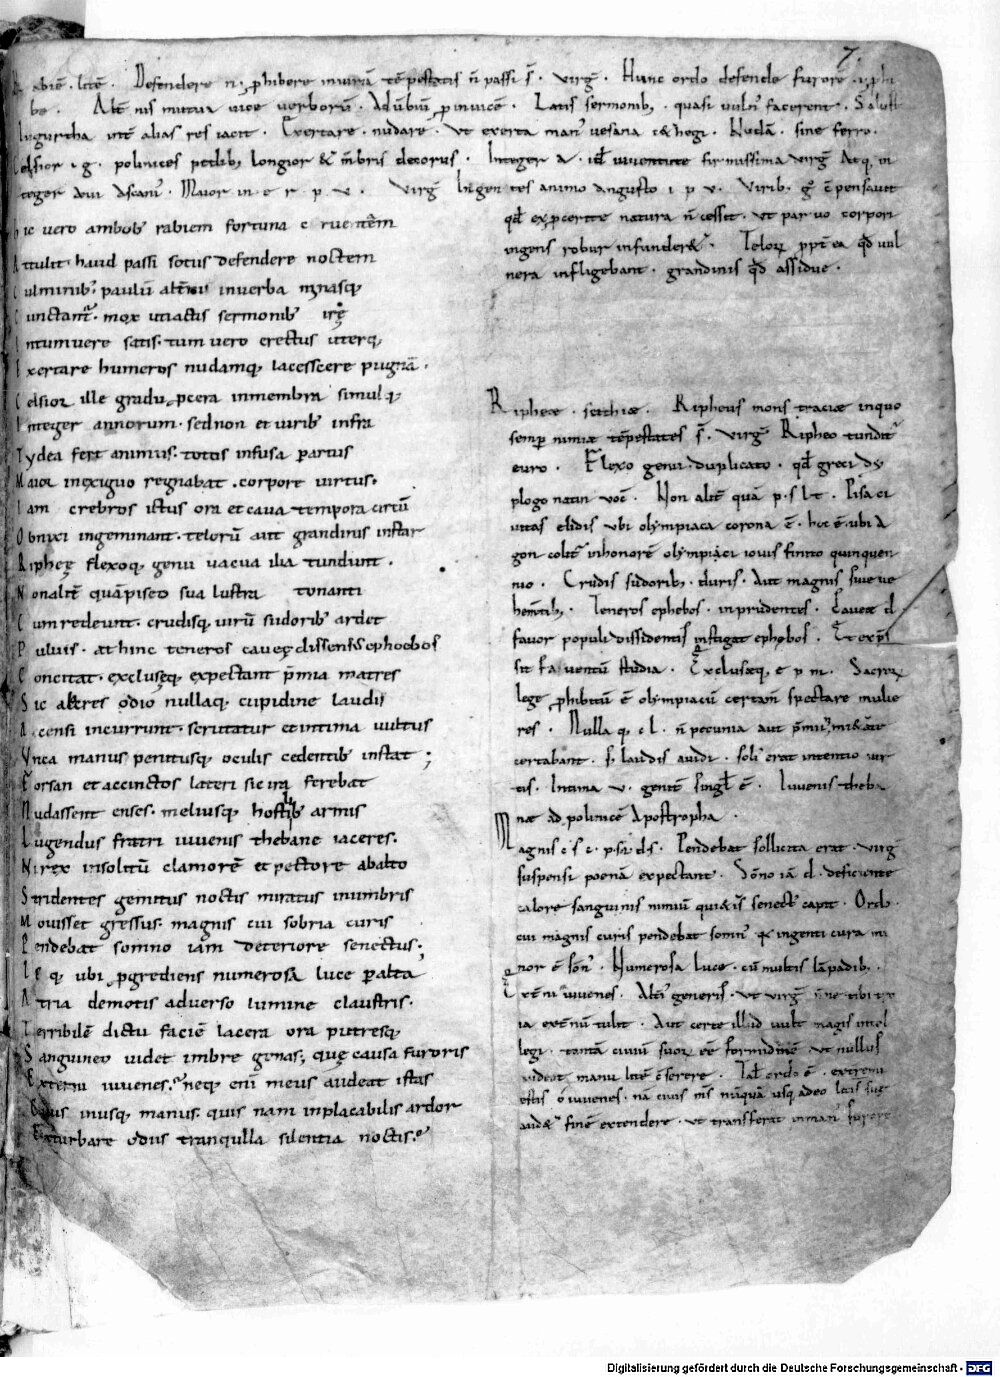 7.
abiē · litē · Defendere n; ꝓhibere iniuriā tēpestatis n̄ passi s̄ · virḡ · Hunc ordo defende furorē
be · Alt̄nis mutua uice uerborū · Aduerbiū ꝑinuicē · Latis sermonib; quasi uuln̄ facerent · Salust
Iugurtha int̄ alias res iacit · Exertare · nudare · Vt exerta man; uesana cethegi · Nudā · sine ferro ·
Celsior · g · polinices pedib; longior & mēbris decorus · Integer a · id ē iuuentute firmissima virḡ Atq; in
teger aeui ascani; · Maior in · e · r · p · v · virḡ Ingentes animo angusto i p v · Virib; g° cōpensauit
hic uero ambob; rabiem fortuna cruentēm
Attulit · haud passi sotus defendere noctem
Culminib; paulū alt̄na inuerba minasq;
Cunctant̄ · mox utiactis sermonib; irę
Intumuere satis · tum uero erectus uterq;
Exertare humeros nudamq; lacesscere pugnā ·
Celsior ille gradu ꝓcera inmembra simulq;
Integer annorum · sed non et uirib; infra
Tydea fert animus · totos infusa per artus
Maior inexiguo regnabat · corpore uirtus ·
Iam crebros ictus ora et caua tempora circū
Obnixi ingeminant · telorū aut grandinis instar
Ripheę flexoq; genu uacua ilia tundunt ·
Nonalit̄ quā piseo sua lustra tonanti
Cum redeunt · crudisq; uirū sudorib; ardet
Puluis · at hinc teneros caueę dissensus ephoebos
Concitat · exclusęq; expectant p̄mia matres
Sic alacres odio nullaq; cupidine laudis
Accensi incurrunt · scrutatur et intima uultus
Vnca manus penitusq; oculis cedentib; instat ;
Forsan et accinctos lateri sic ira ferebat
Nudassent enses · meliusq; hostilib; armis
Lugendus fratri iuuenis thebane iaceres ·
Ni rex insolitū clamorē et pectore ab alto
Stridentes gemitus noctis miratus inumbris
Mouisset gressus · magnis cui sobria curis
Pendebat somno iam deteriore senectus ;
Isq; ubi ꝓgrediens numerosa luce ꝑ alta
Atria demotis aduerso lumine claustris ·
Terribilē dictu faciē lacera ora putresq;
Sanguineo uidet imbre genas ; quę causa furoris
Externi iuuenes · neq; enī meus audeat istas
Ciuis inusq; manus · quis nam inplacabilis ardor
Exturbare odiis tranquilla silentia noctis ·
qd ex ꝑcerite natura n̄ cesset · ut paruo corpori
ingens robur infunder& · Teloꝝ ppt̄ ea qd uul
nera infligebant · grandinis qd assidue ·
Ripheae · scithiae · Ripheus mons traciae inquo
semꝑ nimiae tēpestates s̄ · virḡ Ripheo tundit̄
euro · Flexo genu · duplicato · qd greci dy
plogo natin uoc̄ · Non alit̄ quā p · s l · t · Pisa ci
uitas elidis ubi olympiaca corona ē · hoc ē · ubi a
gon colit̄ inhonorē olympiaci iouis finito quinquen
nio · Crudis sudorib; duris · Aut magnis siue ue
hem̄tib; · Teneros ephebos · inprudentes · Cauea d ·
fauor populi dissidentis instigat ephebos · Et exp̄s
sit fauentū studia · Exclusęq; e p m · Sacraꝝ
lege ꝓhibitū ē olympiacū certam̄ spectare mulie
res · Nulla q · c l · n̄ pecunia aut p̄mii
certabant · s; laudis auidi · soli; erat intentio uir
tis · Intima v · genit̄ singł ē · Iuuenis theba
nae ad polinicē Apostropha ·
Magnis c s c · p · sū · d · s · Pendebat sollicita erat · virḡ
suspensi poenā expectant · Sōno iā d · deficiente
calore sanguinis nimiū quietis senect; capit · Ordo ·
cui magnis curis pendebat somn; & ingenti cura mi
nor ē som̄ · Numerosa luce · cū multis lāpadib; ·
Ext̄ni iuuenes · Alt̄i; generis · ut virḡ
ia ext̄nū tulit · Aut certe illud uult magis intel
legi · tantā ciuiū suoꝝ eē formidinē ut nullus
uideat manu · litē cōserere · Tał ordo ē · externi
estis o iuuenes · nā ciuis m̄s nūquā usq; adeo
aud& finē extendere · ut transferat inman; furorē
Digitalisierung gefördert durch die Deutsche Forschungsgemeinschaft · DFG